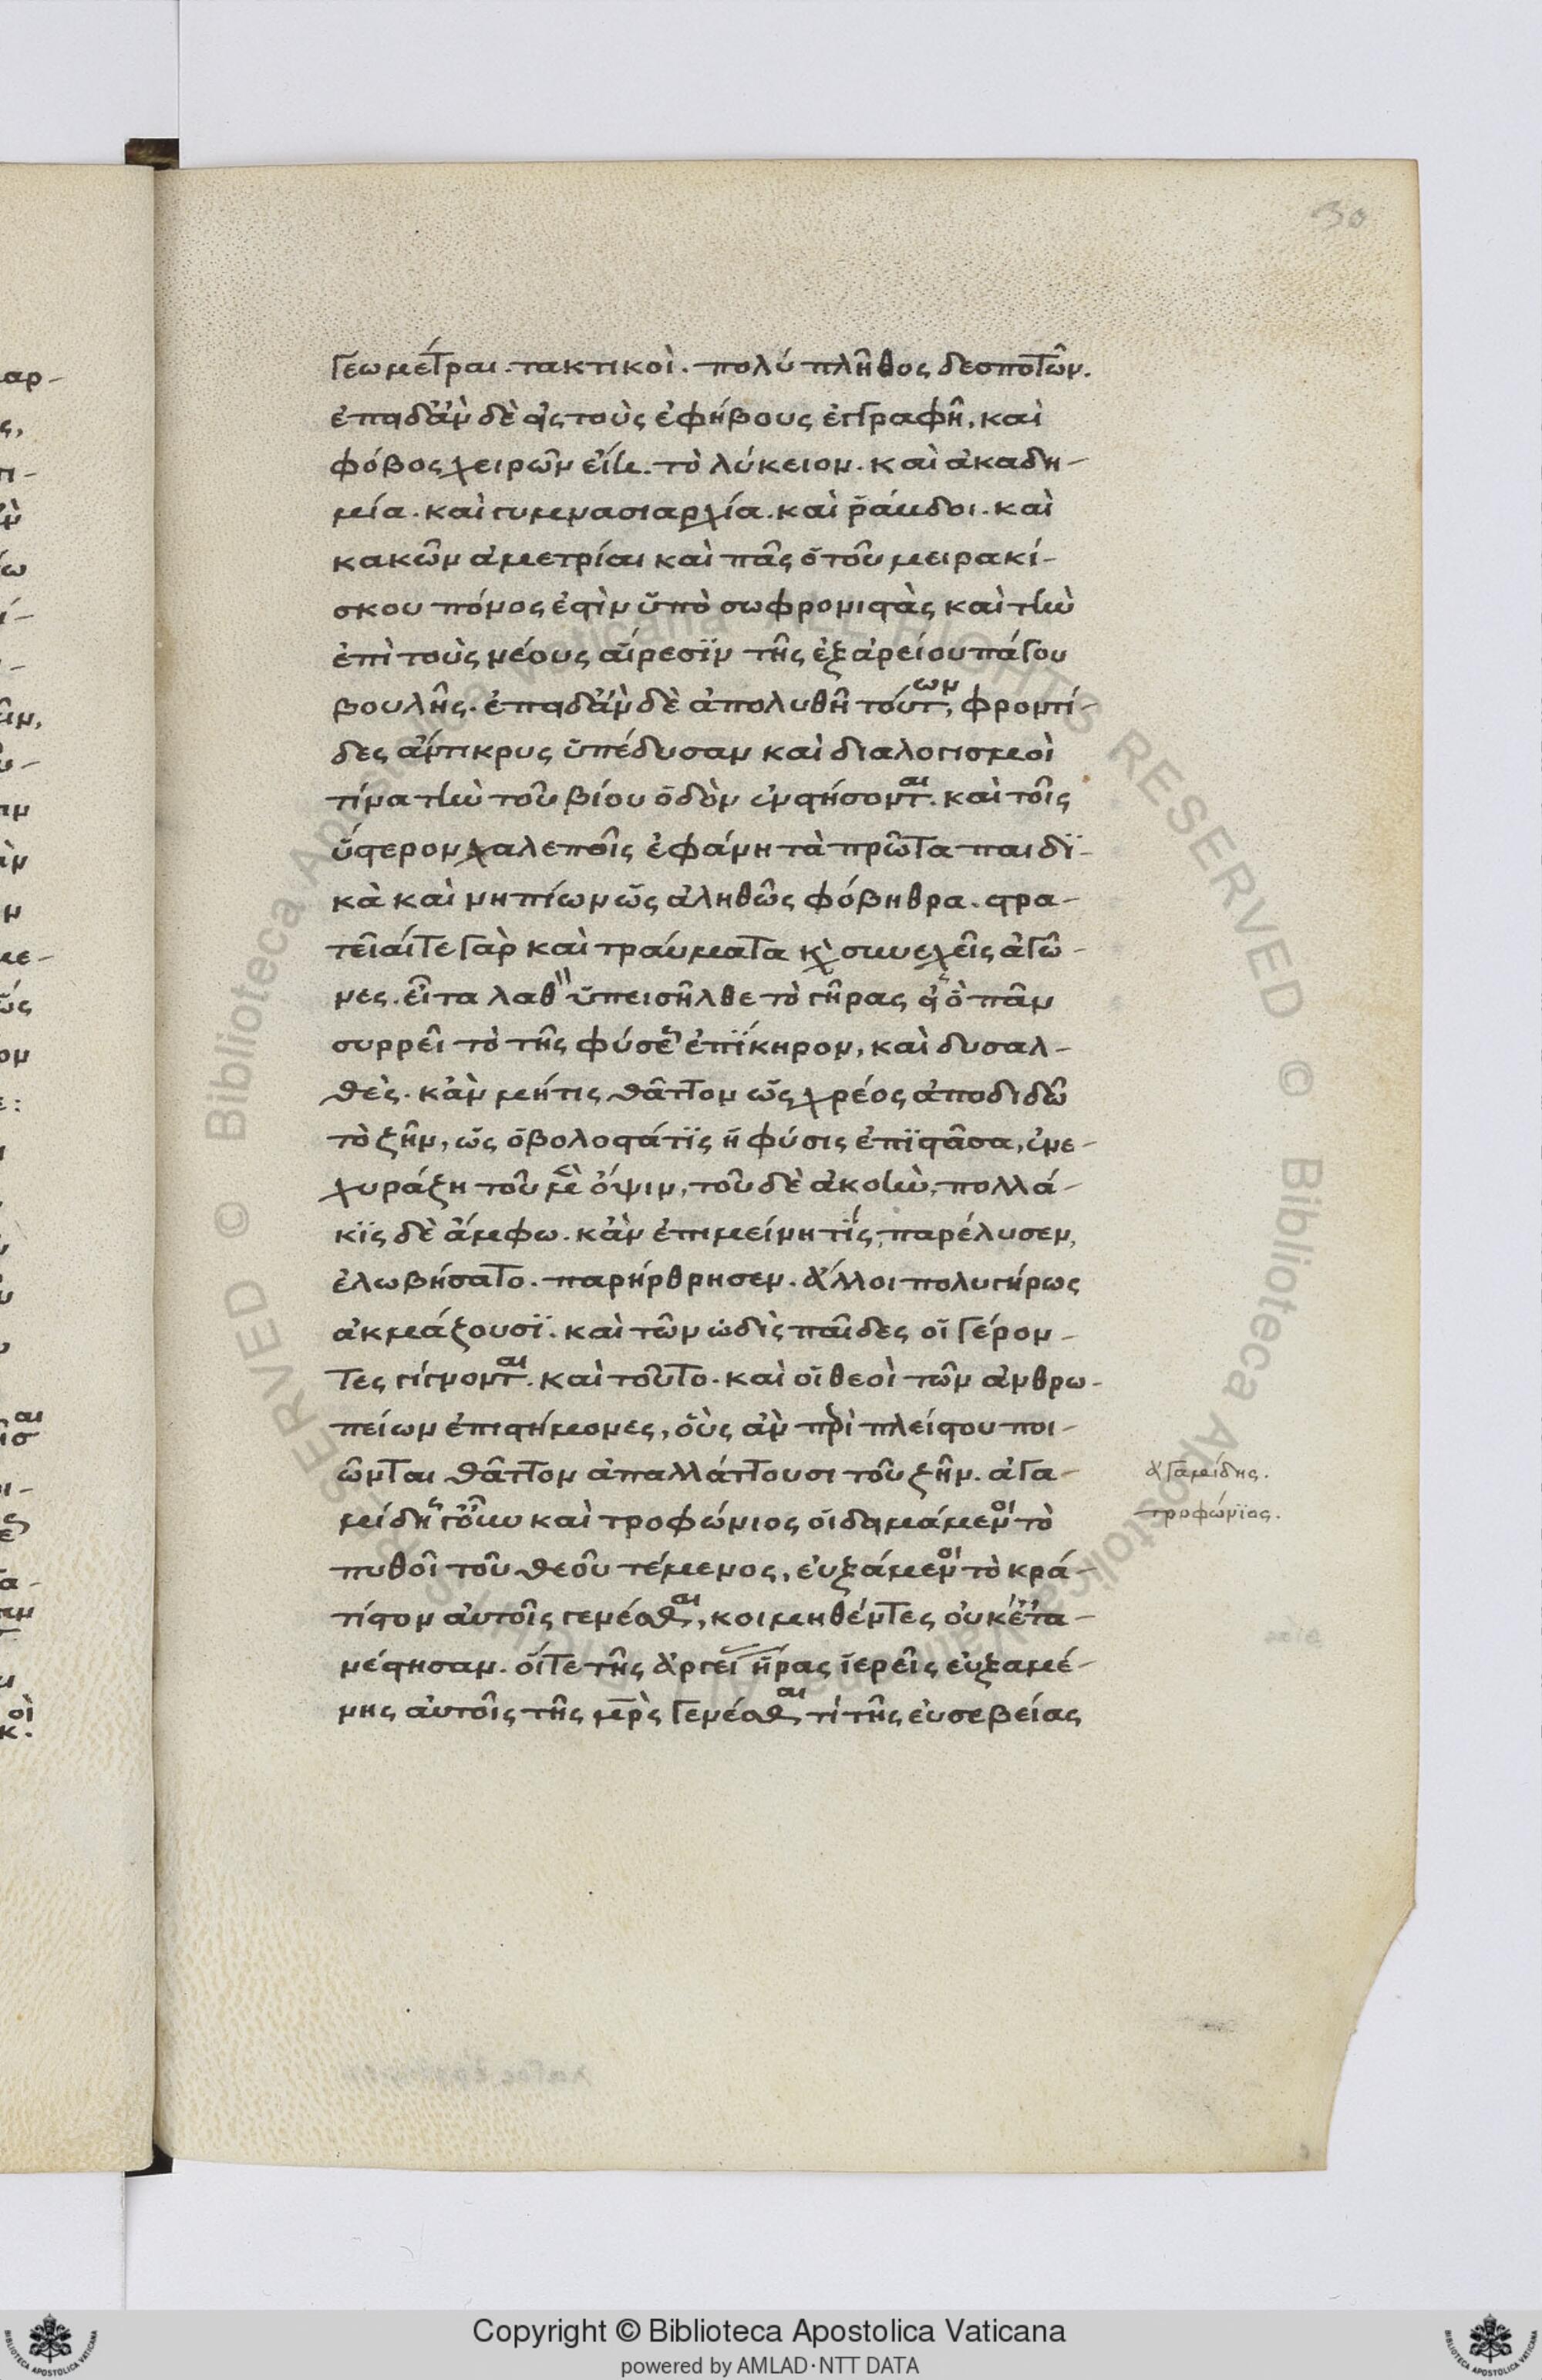 30
γεωμέτραι. τακτικοὶ. πολύ πλῆθος δεσποτῶν.
ἐπειδὰν δὲ εἰς τοὺς ἐφήβους ἐγγραφῆ, καὶ
φόβος χειρῶν εἴη. τὸ λύκειον. καὶ ἀκαδη-
μία. καὶ γυμνασιαρχία. καὶ ῥάβδοι. καὶ
κακῶν ἀμετρίαι καὶ πᾶς ὁ τοῦ μειρακί-
σκου πόνος ἐστὶν ὑπὸ σωφρονιστὰς καὶ τὴν
ἐπὶ τοὺς νέους αἵρεσϊν τῆς ἐξ ἀρείου πάγου
βουλῆς. ἐπειδὰν δὲ ἀπολυθῆ τούτων, φροντί-
δες ἄντικρυς ὑπέδυσαν καὶ διαλογισμοὶ
τίνα τὴν τοῦ βίου ὁδὸν ἐνστήσονται. καὶ τοῖς
ὕστερον χαλεποῖς ἐφάνη τὰ πρῶτα παιδϊ-
κὰ καὶ νηπίων ὡς ἀληθῶς φόβηθρα. στρα-
τεῖαίτε γὰρ καὶ τραύματα καὶ συνεχεῖς ἀγῶ-
νες. εἶτα λαθὸν ὑπεισῆλθε τὸ γῆρας εἰς ὃ πᾶν
συρρεῖ τὸ τῆς φύσεως ἐπϊκηρον, καὶ δυσαλ-
θὲς. κἂν μήτις θᾶττον ὡς χρέος ἀποδιδῶ
τὸ ζῆν, ὡς ὀβολοστάτϊς ἡ φύσις ἐπϊστᾶσα, ἐνε-
χυράζη τοῦ μὲν ὄψιν, τοῦ δὲ ἀκοὴν, πολλά-
κϊς δὲ ἄμφω. κἂν ἐπιμείνη τϊς, παρέλυσεν,
ἐλωβήσατο. παρήρθρησεν. ἄλλοι πολυγήρως
ἀκμάζουσϊ. καὶ τῶν ὠδὶς παῖδες οἱ γέρον-
τες γίγνονται. καὶ τοῦτο. καὶ οἱ θεοὶ τῶν ἀνθρω-
πείων ἐπιστήμονες, οὓς ἂν περὶ πλείστου ποι-
ῶνται θᾶττον ἀπαλλάττουσι τοῦ ζῆν. ἀγα-
μίδης γοῦν καὶ τροφώνιος οἱ δειμάμενοι τὸ
πυθοῖ τοῦ θεοῦ τέμενος, εὐξάμενοι τὸ κρά-
τίστον αὐτοῖς γενέσθαι, κοιμηθέντες οὐκέτα-
νέστησαν. οἵτε τῆς ἀργείας ἥρας ἱερεῖς εὐξαμέ-
νης αὐτοῖς τῆς μητρὸς γενέσθαι τί τῆς εὐσεβείας
ἀγαμίδης.
τροφώνϊος.
Copyright © Biblioteca Apostolica Vaticana
powered by AMLAD·NTT DATA